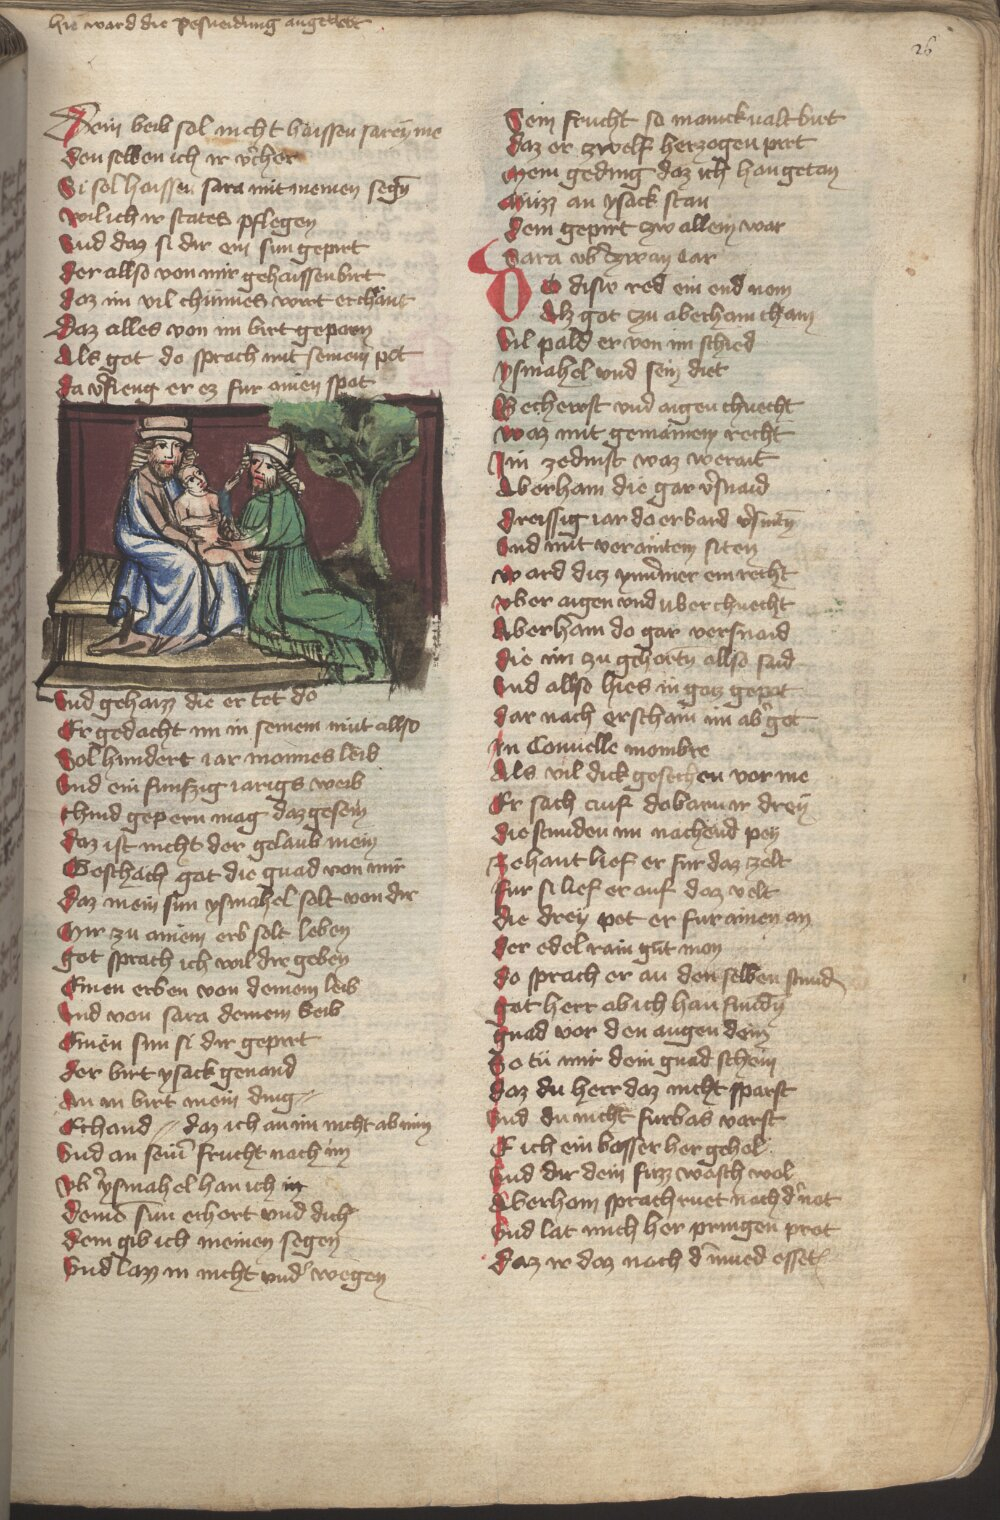 hie ward die pesneidung angehebt
26
Dein beib sol nicht haissen sarey me
den selben ich ir v̓cher
Si sol haissen sara mit meinen segn̄
wil ich ir states pflegen
Vnd daz si dir ein sun gepirt
der allso von mir gehaissen birt
daz im vil chunnes wirt erchant
Daz alles von im birt geporn
Als got do sprach mit seinem pot
da v̓fieng er ez fur ainen spot
Vnd gehaizz die er tet do
Er gedacht im in seinem mut allso
Sol hundert iar mannes leib
Vnd ein funfzig iarigs weib
chind gepern mag daz gesein
daz ist nicht der gelaub mein
Geschach got die gnad von mir
daz mein sun ysmahel solt von dir
Mir zu ainem erb solt leben
got sprach ich wil dir geben
Einen erben von deinem leib
Vnd von sara deinem beib
Einen sun si dir gepirt
der birt ysack genand
An im birt mein ding
Echand daz ich an im nicht ab nim
Vnd an seim frucht nach im
Vb̓ ysmahel han ich in
deinē sun erhort vnd dich
dem gib ich meinen segen
Vnd lazz in nicht vnd̓ wegen
Sein frucht so manickualt birt
daz er zwelf herzogen pirt
mein geding daz ich han getan
muzz an ysack stan
dem gepirt zw allem war
Sara vb̓ zway iar
Do disiv red ein end nom
Alz got zu aberham cham
Vil pald er von im schied
ysmahel vnd sein diet
Vecherost vnd aigen chnecht
waz mit gemainem recht
Im ze dinst waz werait
Aberham die gar v̓snaid
dreissig iar do er bard v̓snitn̄
Vnd mit veraintem siten
ward diz ymmer ein recht
vber aigen vnd vber chnecht
Aberham do gar versnaid
die im zu gehortn̄ allso said
Vnd allso hies in gotz gepot
dar nach erschain im ab̓ got
In Conuelle mombre
Als vil dick geschehen vor me
Er sach auf do barn ir drey
die stunden im nachend pey
zehant lief er fur daz zelt
fur si lief er auf daz velt
die drey pot er fur ainen an
der edel rain gut man
do sprach er an den selben stund
got herr ob ich han fundn̄
gnad vor den augen dein
So tu mir dein gnad schein
daz du herr daz nicht sparst
Vnd du nicht furbas varst
E ich ein basser her gehol
Vnd dir dein fuzz wasch wol
Aberham sprach ruet nach d̓ not
Vnd lat mich her pringen prot
daz ir daz nach d̓ mued esset